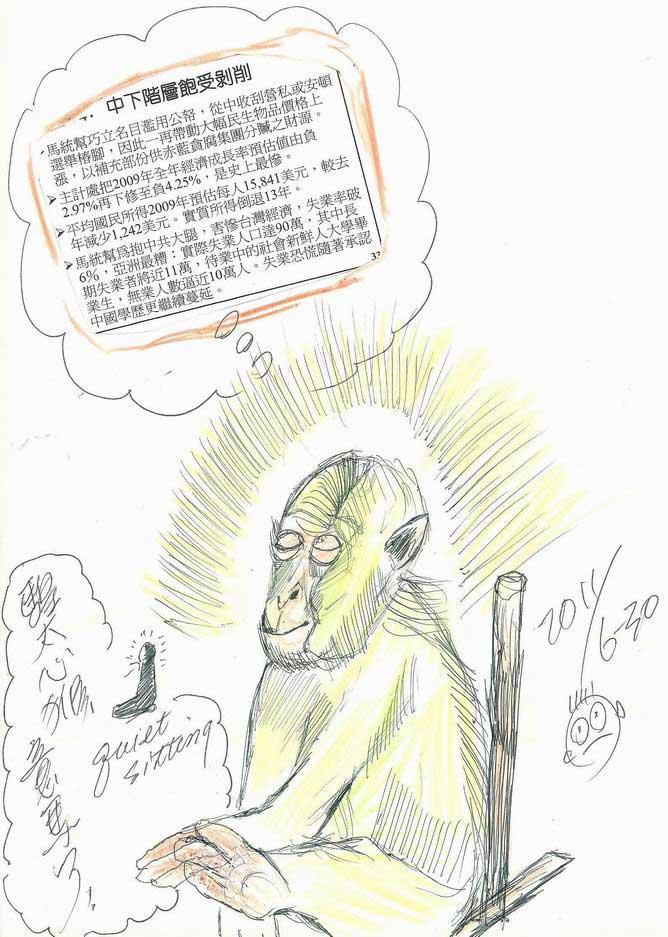 中下階層飽受剝削
馬統幫巧立名目濫用公帑，從中收刮營私或安頓
選舉樁腳，因此一再帶動大幅民生物品價格上
漲，以補充部份供赤藍貪腐集團分贓之財源。
➤主計處把2009年全年經濟成長率預估值由負
2.97%再下修至負4.25%，是史上最慘。
➤平均國民所得2009年預估每人15,841美元，較去
年減少1,242美元。實質所得倒退13年。
➤馬統幫為抱中共大腿，害慘台灣經濟，失業率破
6%，亞洲最糟：實際失業人口達90萬，其中長
期失業者將近11萬，待業中的社會新鮮人大學畢
業生，無業人數逼近10萬人。失業恐慌隨著承認
中國學歷更繼續蔓延。
太心猿意馬了
quiet
sitting
2011/6-30